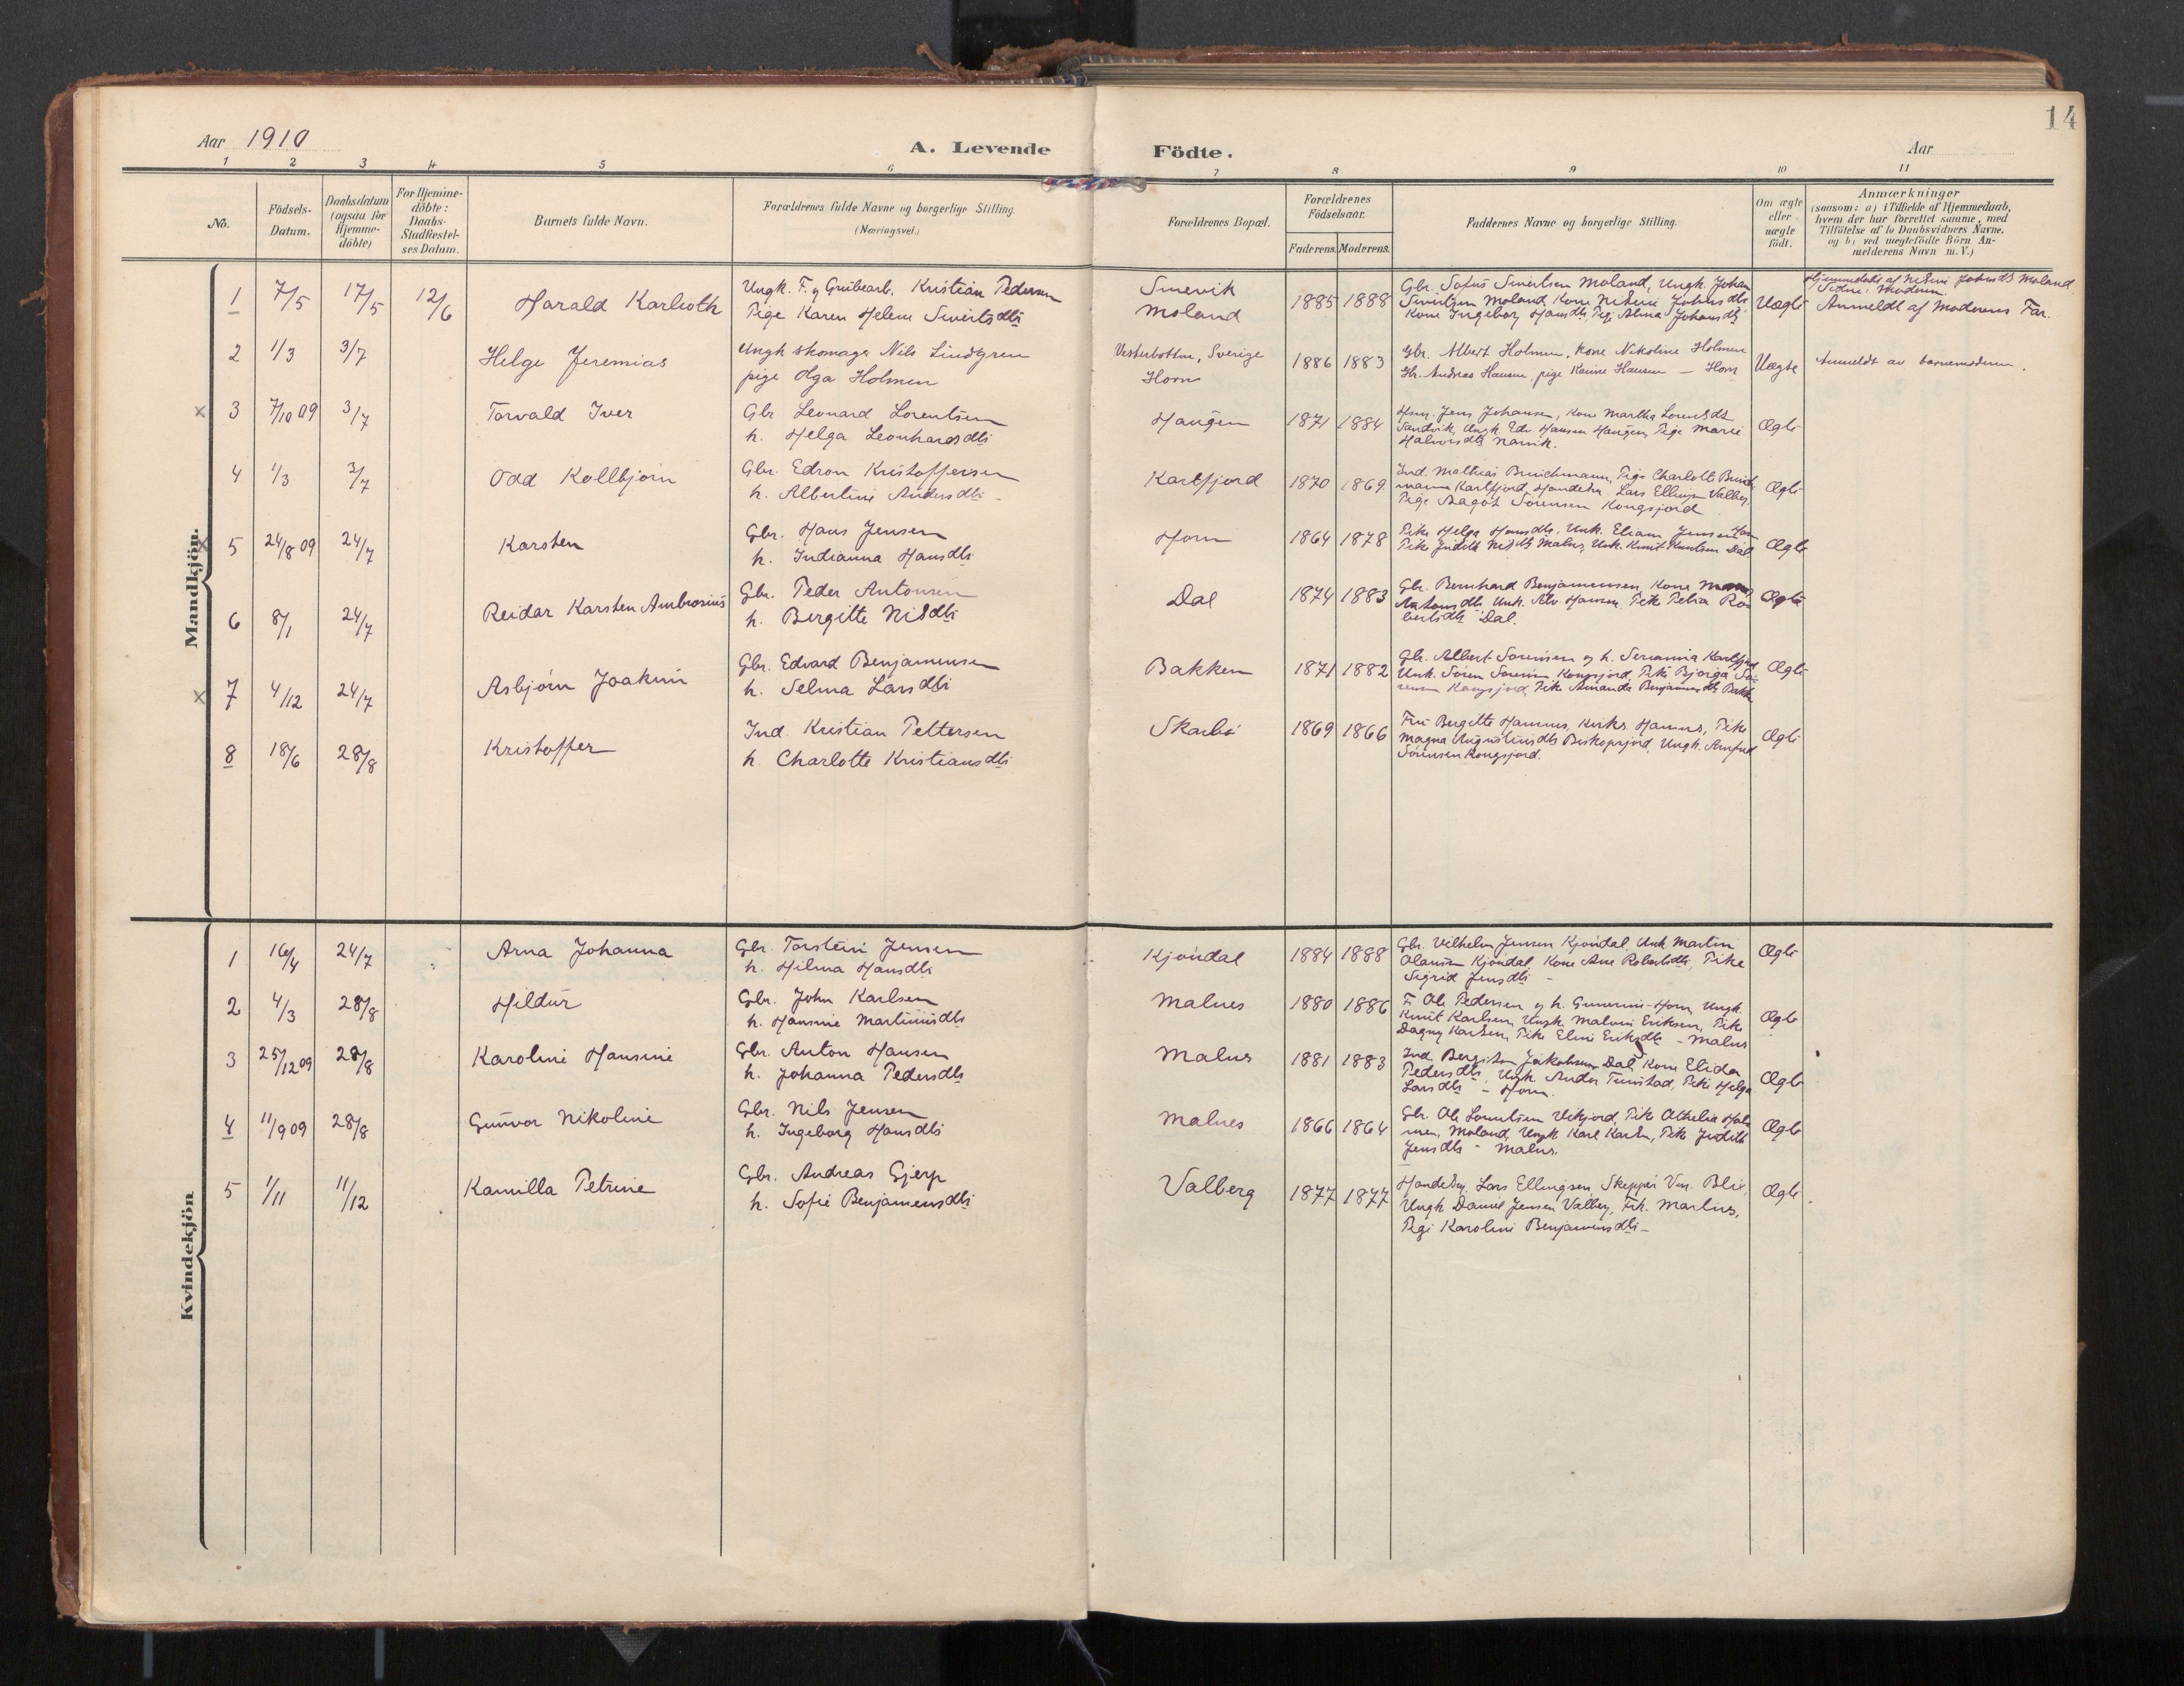 14
Aar 1910
A. Levende Födte.
Aar
1 2 3 4 5 6 7 8 9 10 11
No.
Födsels-
Datum.
Daabsdatum
(ogsaa for
Hjemme-
döbte)
For Hjemme-
döbte:
Daabs-
Stadfæstel-
ses Datum.
Barnets fulde Navn.
Forældrenes fulde Navne og borgerlige Stilling.
(Næringsvei.)
Forældrenes Bopæl.
Forældrenes
Födselsaar.
Faderens. Moderens.
Faddernes Navne og borgerlige Stilling.
Om ægte
eller
uægte
födt.
Anmærkninger
(saasom: a) i Tilfælde af Hjemmedaab,
hvem der har forrettet samme, med
Tilföielse af to Daabsvidners Navne,
og b) ved uægtefödte Börn An-
melderens Navn m.V.)
Mandkjön.
1 7/5 17/5 12/6 Harald Karluoth
Ungk. F. og Grubearb. Kristian Pedersen
Pige Karen Helene Sivertsdtr
Smevik
Moland
1885 1888
Gbr. Sofus Sivertsen Moland, Ungk. Johan
Sivertsen Moland, Kone Johansdtr
Kone Ingeborg Hansdtr, Pige Alma Johansdtr
Uægte
Hjemmedøbt af Johansdtr Moland
Anmeldt af Moderens Far.
2 1/3 3/7 Helge Jeremias
Ungk skomager Nils Lindgren
pige Olga Holmen
Vesterbotten, Sverige
Horn
1886 1883
Gbr. Albert Holmen, Kone Nikoline Holmen
Gbr. Andreas Hansen, pige Hansen – Horn
Uægte
Anmeldt av barnemoderen.
x 3 7/10 09 3/7 Torvald Iver
Gbr Leonard Lorentsen
h. Helga Leonhardsdtr
Haugen
1871 1884
Hsm. Jens Johansen, Kone Martha Lorentsdtr
Sandvik, Ungk. Edv. Hansen Haugen, Pige Marie
Halvorsdtr
Ægte
4 1/3 3/7 Odd Kollbjørn
Gbr. Edron Kristoffersen
h. Albertine Andersdtr
Karlfjord
1870 1869
Ind. Mathias Bruchmann, Pige Charlotte Bruch-
mann Karlfjord, Handelsm. Lars Ellingsen Valberg,
Pige Dagot Sørensen Kongsjord
Ægte
x 5 24/8 09 24/7 Karsten
Gbr. Hans Jensen
h. Indianna Hansdtr
Horn
1864 1878
Pike Helga Hansdtr, Unk. Eliam Jensen Horn
Pike Judith Nilsdtr Malnes, Unk. Knut Knutsen Dal
Ægte
6 8/1 24/7 Reidar Karsten Ambrosius
Gbr. Peder Antonsen
h. Bergitte Nilsdtr
Dal
1874 1883
Gbr. Bernhard Benjaminsen, Kone
Antonsdtr, Unk. Alv Hansen, Pike Petra Ro-
bertsdtr Dal.
Ægte
x 7 4/12 24/7 Asbjørn Joakim
Gbr. Edvard Benjaminsen
h. Selma Larsdtr
Bakken
1871 1882
Gbr. Albert Sørensen og h. Serianna Karlfjord
Unk. Søren Sørensen Kongsjord, Pike Bjørga Sø-
rensen Kongsjord, Pike Amanda Benjaminsdtr Bakk
Ægte
8 18/6 28/8 Kristoffer
Ind. Kristian Pettersen
h. Charlotte Kristiansdtr
Skarbø
1869 1866
Fru Bergitte Hamnes, Kirks. Hamnes, Pike
Magna Augustinusdtr Biskopsjord, Ungk. Arnfred
Sørensen Kongsjord.
Ægte
Kvindekjön
1 16/4 24/7 Arna Johanna
Gbr. Torstein Jensen
h. Hilma Hansdtr
Kjøndal
1884 1888
Gbr. Vilhelm Jensen Kjøndal, Unk Martin
Olausen Kjøndal, Kone Ane Robertsdtr, Pike
Sigrid Jensdtr –
Ægte
2 4/3 28/8 Hildur
Gbr. John Karlsen
h. Hansine Martinusdtr
Malnes
1880 1886
F. Ole Pedersen og h. Horn, Ungk.
Knut Karlsen, Ungk. Malvin Eriksen, Pike
Dagny Karlsen, Pike Eline Eriksdtr – Malnes
Ægte
3 25/12 09 28/8 Karoline Hansine
Gbr. Anton Hansen
h. Johanna Pedersdtr
Malnes
1881 1883
Ind. Bergiton Jakobsen Dal, Kone Elida
Pedersdtr, Ungk. Ander Tunstad, Pike Helga
Larsdtr – Horn.
Ægte
4 11/9 09 28/8 Gunvor Nikoline
Gbr. Nils Jensen
h. Ingeborg Hansdtr
Malnes
1866 1864
Gbr. Ole Lorentsen Utkjord, Pike Othelia Hol-
men, Moland, Ungk Karl Karlsen, Pike Judith
Jensdtr – Malnes.
Ægte
5 1/11 11/12 Kamilla Petrine
Gbr. Andreas Gjerp
h. Sofie Benjaminsdtr
Valberg
1877 1877
Handelsm. Lars Ellingsen, Skepper Vm. Blix,
Ungk Daniel Jensen Valberg, Frk. Marlius,
Pige Karoline Benjaminsdtr –
Ægte